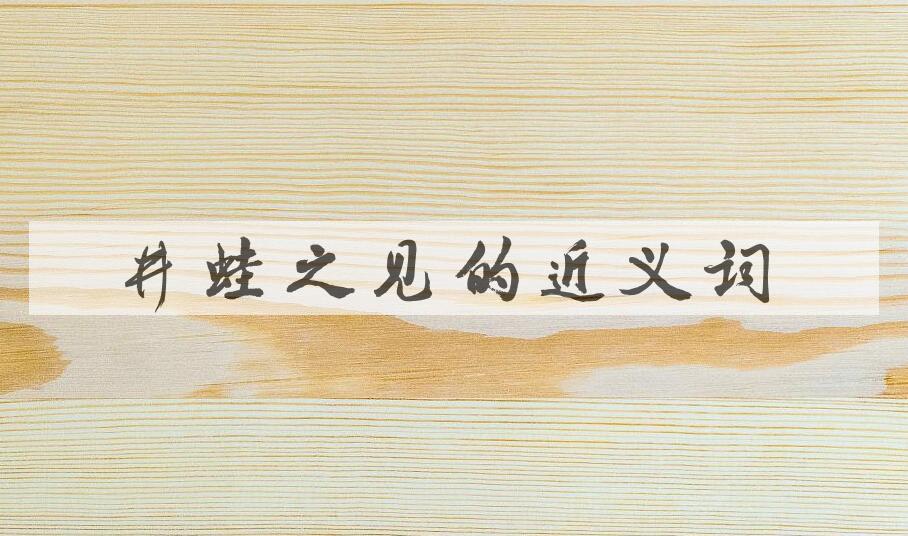 井蛙之见的近义词